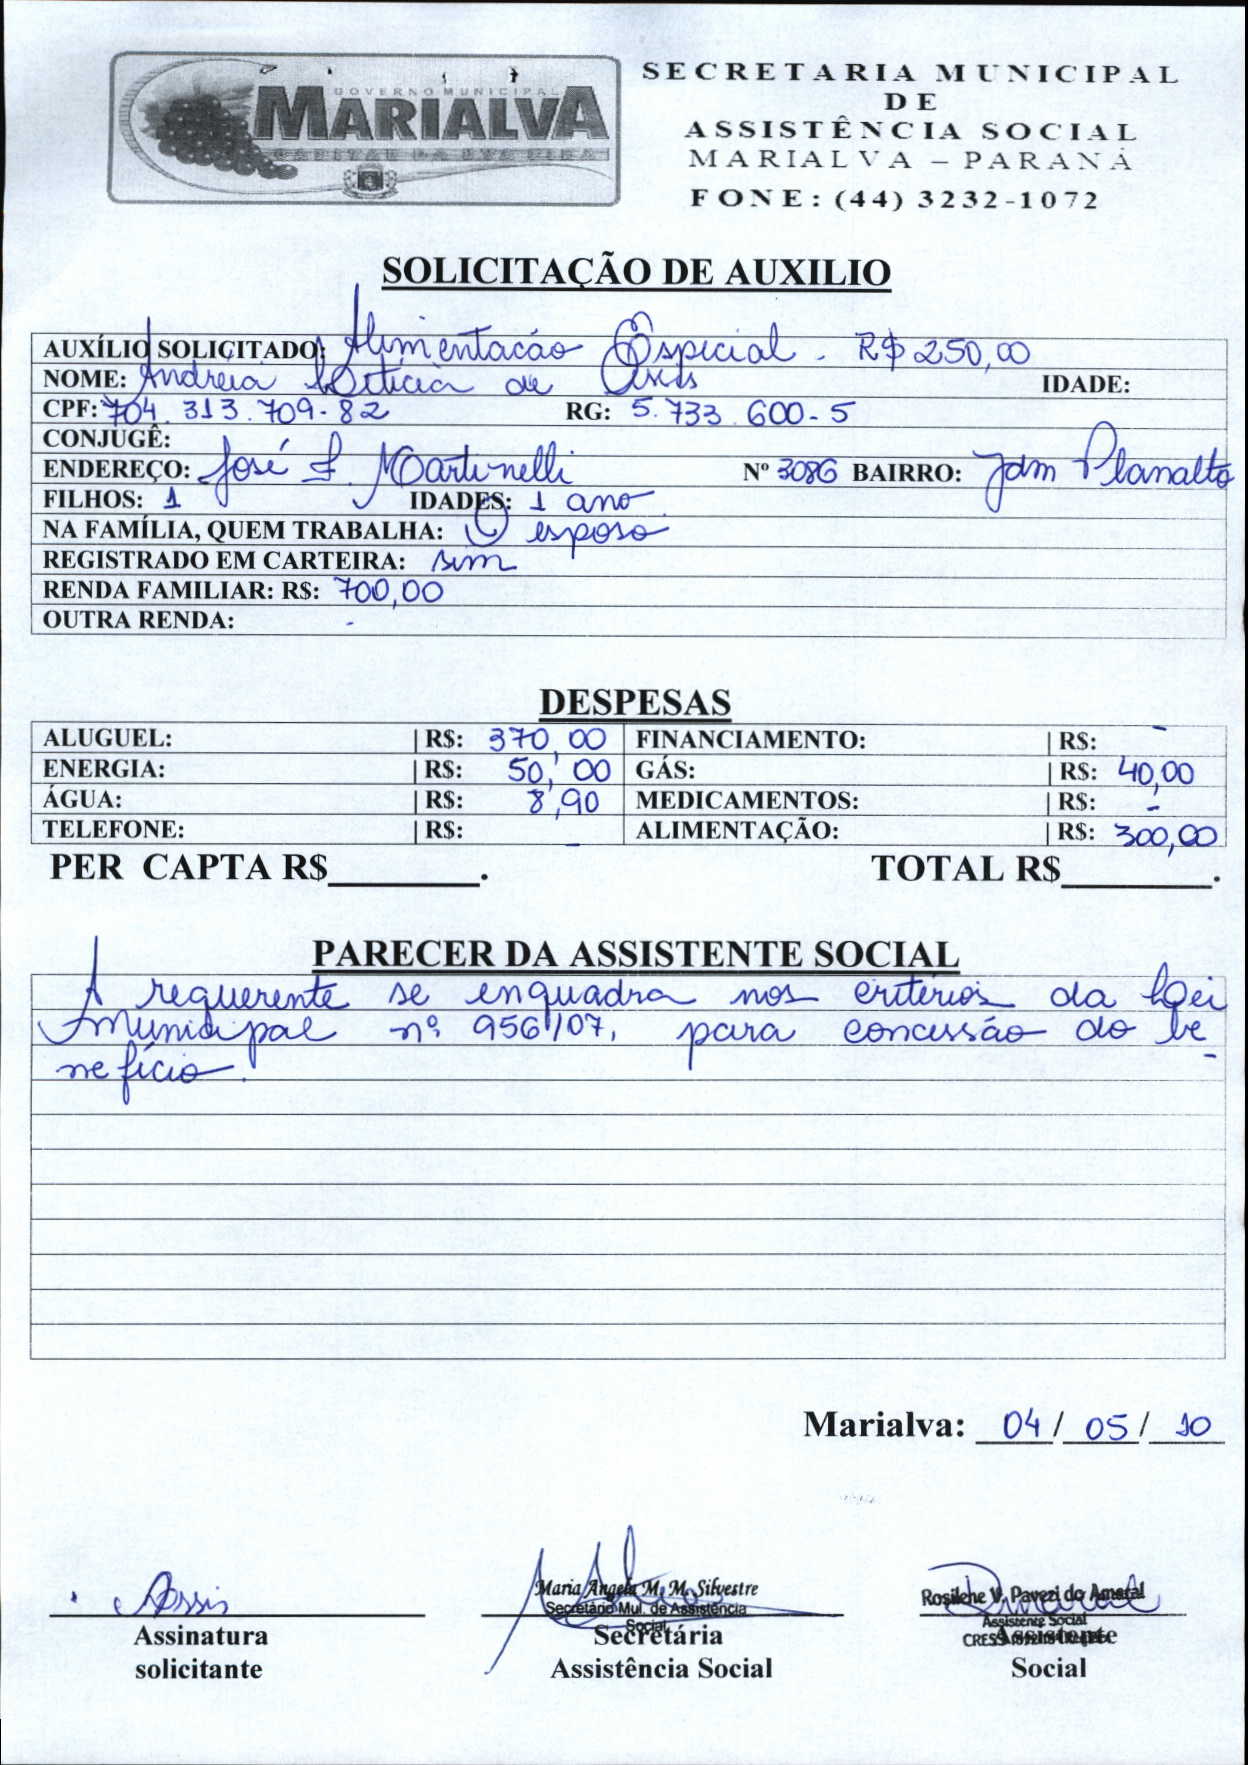 GOVERNO MUNICIPAL
MARIALVA
CAPITAL DA UVA FINA
SECRETARIA MUNICIPAL
DE
ASSISTÊNCIA SOCIAL
MARIALVA – PARANÁ
FONE: (44) 3232-1072
SOLICITAÇÃO DE AUXILIO
AUXÍLIO SOLICITADO: Alimentacão Especial - R$ 250,00
NOME: Andréia Leticia de Assis IDADE:
CPF: 704.313.709-82 RG: 5.733.600-5
CONJUGÊ:
ENDEREÇO: José F. Martinelli Nº 3086 BAIRRO: Jdm Planalto
FILHOS: 1 IDADES: 1 ano
NA FAMÍLIA, QUEM TRABALHA: O esposo
REGISTRADO EM CARTEIRA: sim
RENDA FAMILIAR: R$: 700,00
OUTRA RENDA: -
DESPESAS
ALUGUEL: | R$: 370,00 FINANCIAMENTO: | R$: -
ENERGIA: | R$: 50,00 GÁS: | R$: 40,00
ÁGUA: | R$: 8,90 MEDICAMENTOS: | R$: -
TELEFONE: | R$: - ALIMENTAÇÃO: | R$: 300,00
PER CAPTA R$________. TOTAL R$________.
PARECER DA ASSISTENTE SOCIAL
A requerente se enquadra nos critérios da Lei
Municipal nº 956/07, para concessão do be
nefício.
Marialva: 04/05/10
Assis
Maria Angela M. M. Silvestre
Secretário Mul. de Assistência
Social
Rosilene V. Pavezi do Amaral
Assistente Social
CRESS
Assinatura
solicitante
Secretária
Assistência Social
Assistente
Social